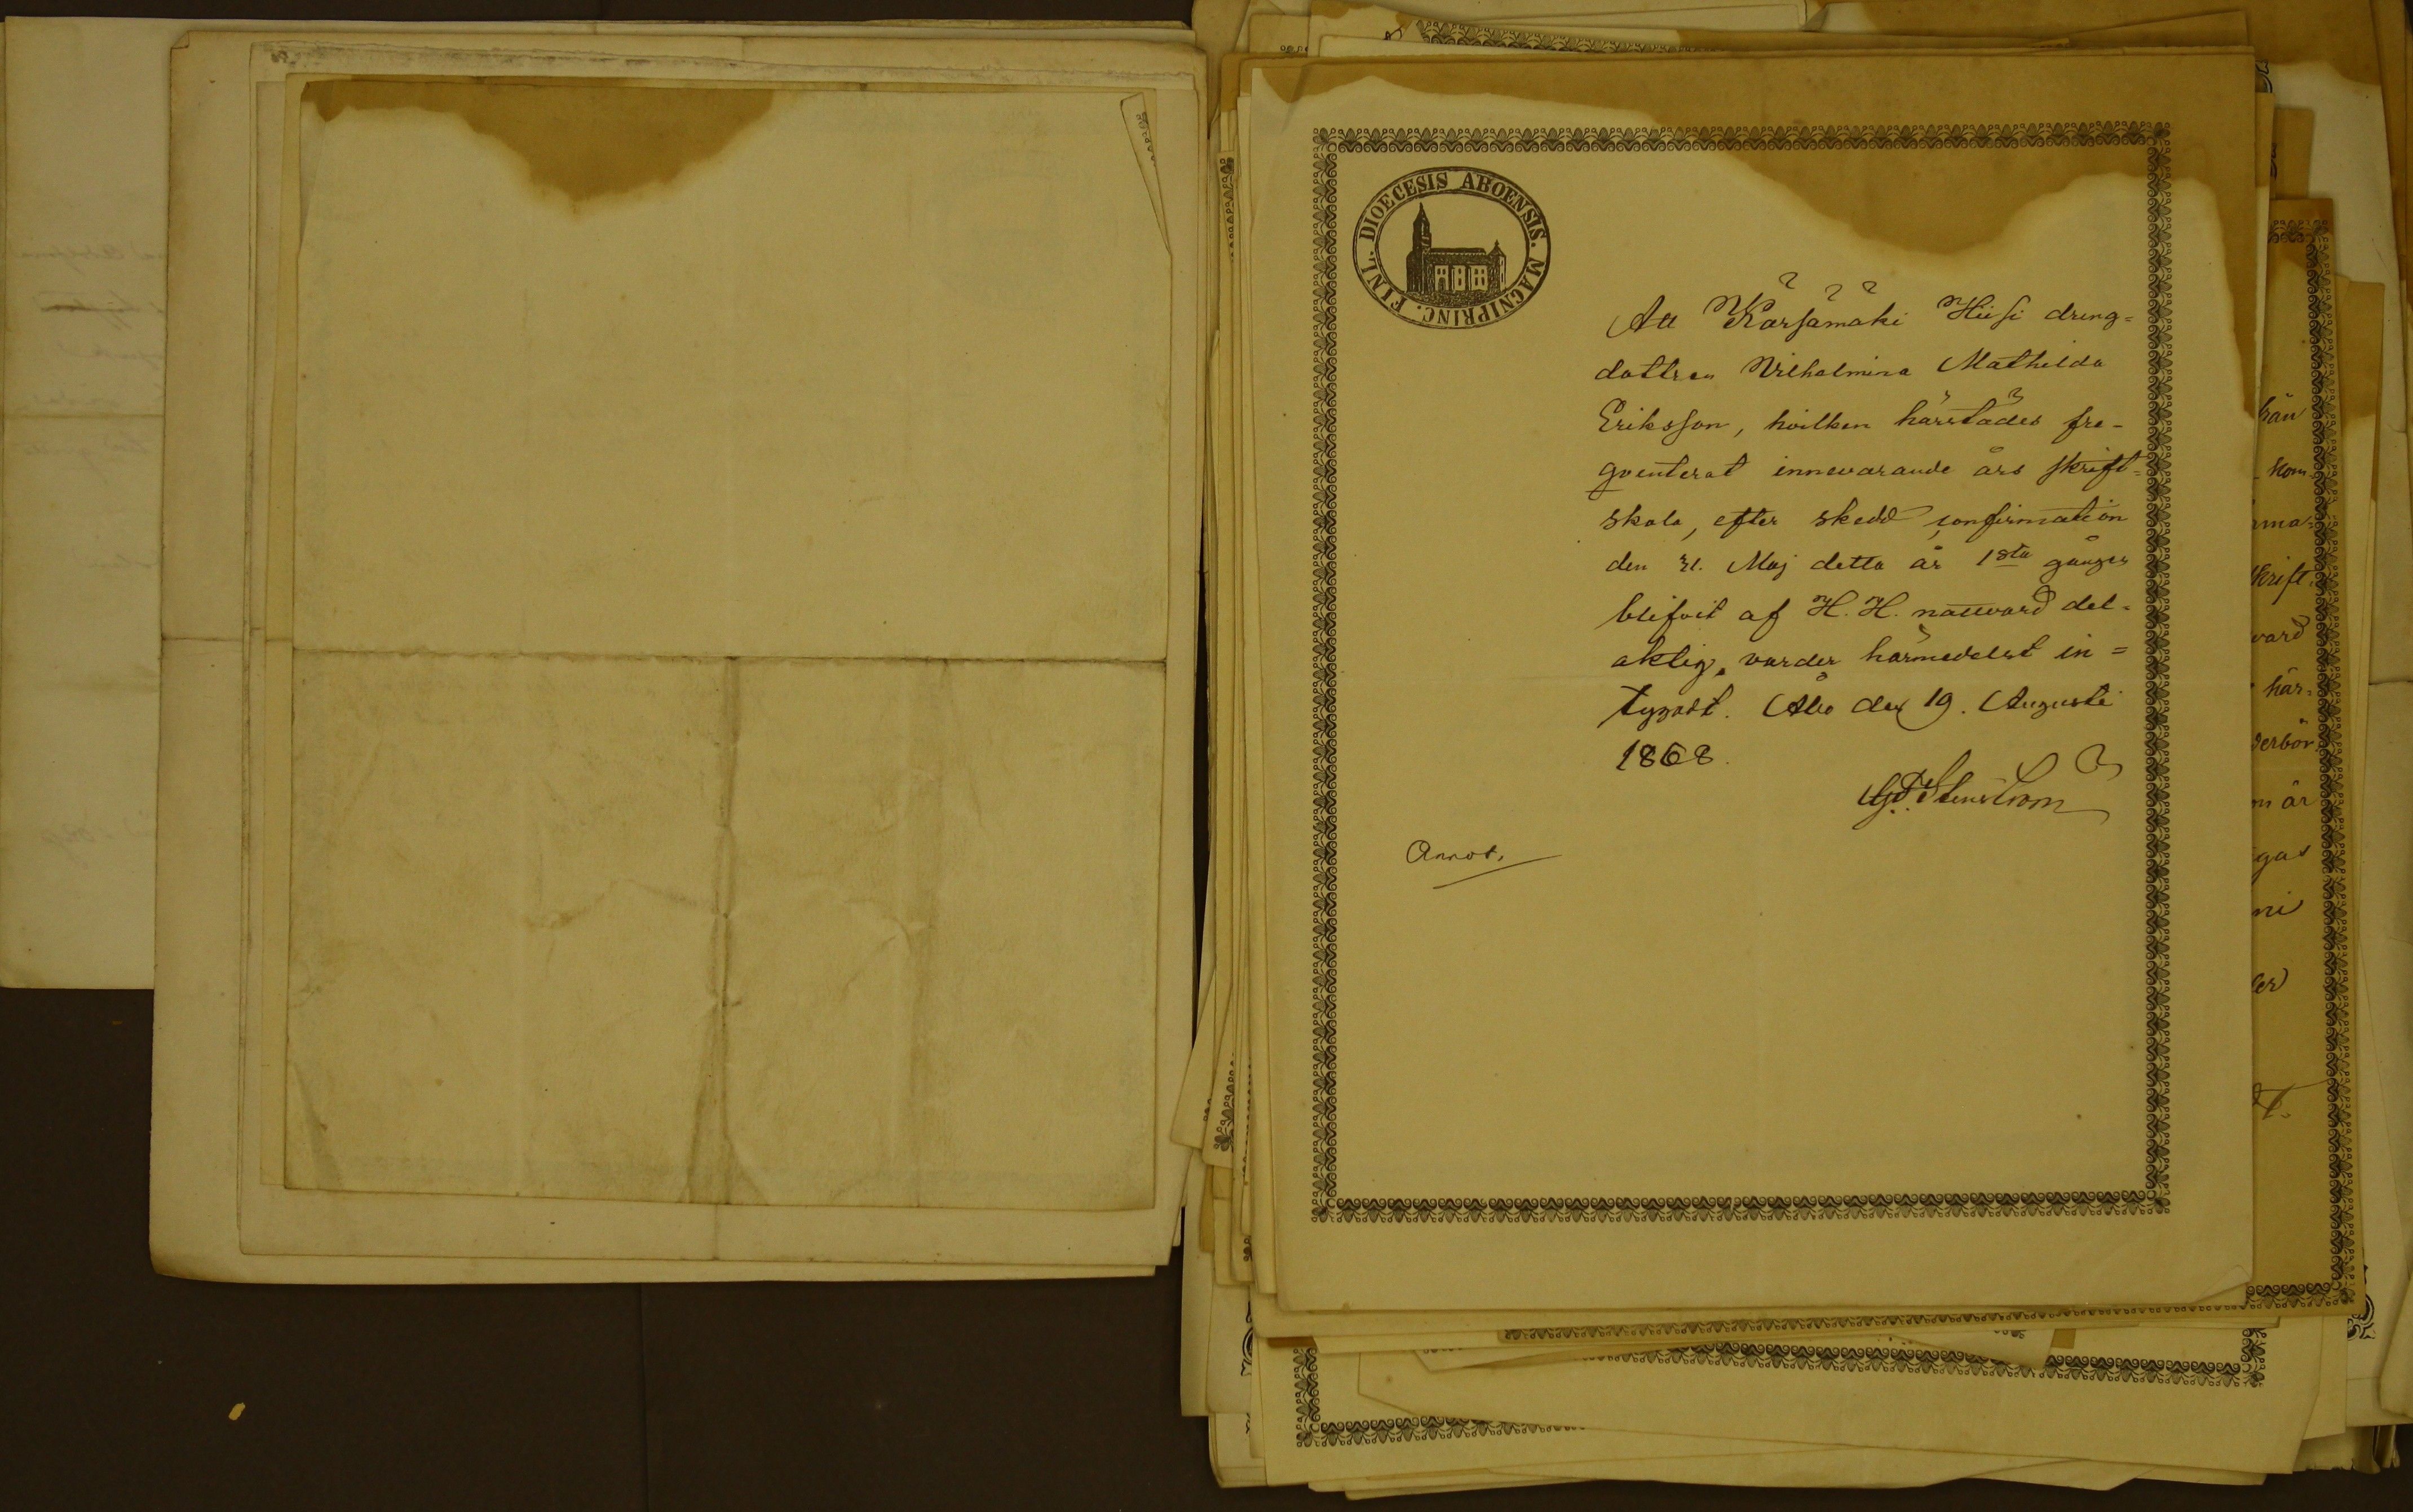 DIOECESIS ABOENSIS. MAGNIPRINC. FINL.
Att Kärsämäki Hiisi dreng=
dottren Vilhelmina Mathilda
Eriksson, hvilken härstädes fre-
qventerat innevarande års skrift=
skola, efter skedd confirmation
den 31. Maj detta år 1sta gången
blifvit af H. H. nattvard del=
aktig, varder härmedelst in=
tygadt. Åbo den 19. Augusti
1868.
G. Stenström
Annot.
från
kom
skrift
vard
här=
derbör
m är
gas
ni